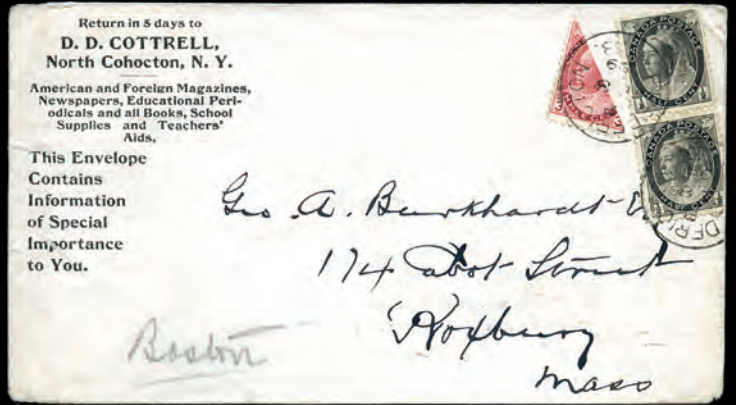 Return in 5 days to
D. D. COTTRELL,
North Cohocton, N. Y.
American and Foreign Magazines,
Newspapers, Educational Peri-
odicals and all Books, School
Supplies and Teachers'
Aids.
This Envelope
Contains
Information
of Special
Importance
to You.
CANADA POSTAGE
HALF CENT
CANADA POSTAGE
HALF CENT
Geo. A. Burkhardt
174 Street
Roxbury
Mass
Boston